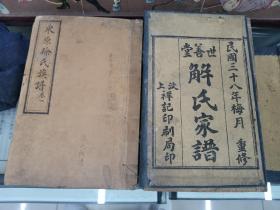 民國三十八年梅月 重修
世善堂
解氏家譜
汶上祥記印刷局印
氏族譜